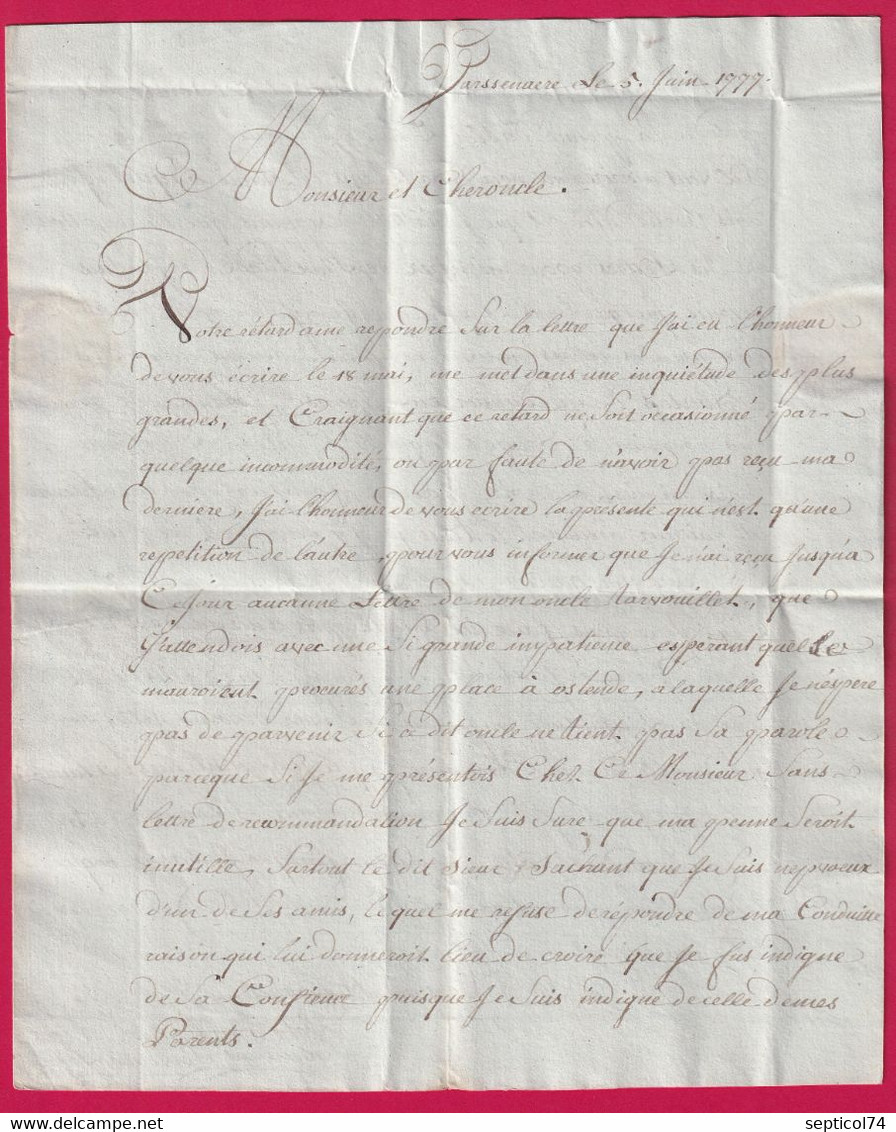 Varssenaere Le 5. Juin 1777.
Monsieur et Cheroncle.
Votre rétard ame repondre Sur la lettre que J'ai eu l'honneur
de vous écrire le 18 mai, me met dans une inquiétude des plus
grandes, et Craignant que ce retard ne Soit occasionné par
quelque incommodité, ou par faute de n'avoir pas reçu ma
derniere, J'ai l'honneur de vous écrire la présente qui n'est qu'une
repetition de l'autre, pour vous informer que Je n'ai reçu Jusqu'a
Ce Jour aucunne Lettre de mon oncle tarvouillet, que
J'attendois avec une Si grande impatience esperant qu'elles
m'auroient procurés une place à ostende, a laquelle Je n'espere
pas de parvenir Si ce dit oncle ne tient pas Sa parole
parceque Si Je me présentois Chez Ce Monsieur Sans
lettre de recommandation Je Suis Sure que ma penne Seroit
inutille, Surtout le dit Sieur Sachant que Je Suis nepveux
d'un de Ses amis, le quel me refuse de répondre de ma Conduitte
raison qui lui donneroit lieu de croire que Je fus indigne
de Sa Confience puisque Je Suis indigne de celle de mes
Parents.
septicol74